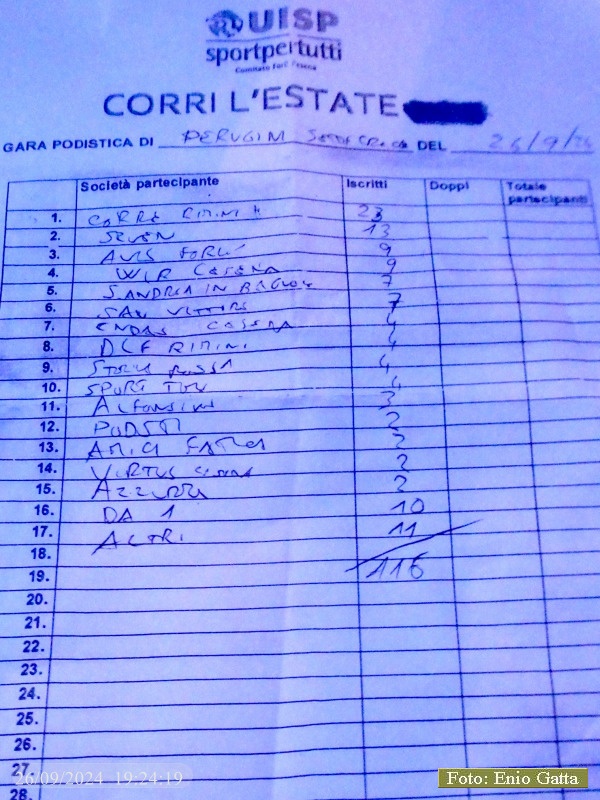 UISP
sportpertutti
Comitato Forlì Cesena
CORRI L'ESTATE
GARA PODISTICA DI PERUGIM DEL 26/9/24
Società partecipante Iscritti Doppi Totale partecipanti
1. CORRE RIMINI 23
2. SEVEN 13
3. AVIS FORLI 9
4. WIR CESENA 9
5. S ANDREA IN BAGNOLO 7
6. SAN VITTORE 7
7. ENDAS CESENA 4
8. DLF RIMINI 4
9. STELLA ROSSA 4
10. SPORT 4
11. ALFONSINE 3
12. PODISTI 2
13. AMICI 2
14. VIRTUS CESENA 2
15. AZZURRA 2
16. DA 1 10
17. ALTRI 11
18.
19. 116
20.
21.
22.
23.
24.
25.
26.
27.
28.
26/09/2024 19:24:19
Foto: Enio Gatta